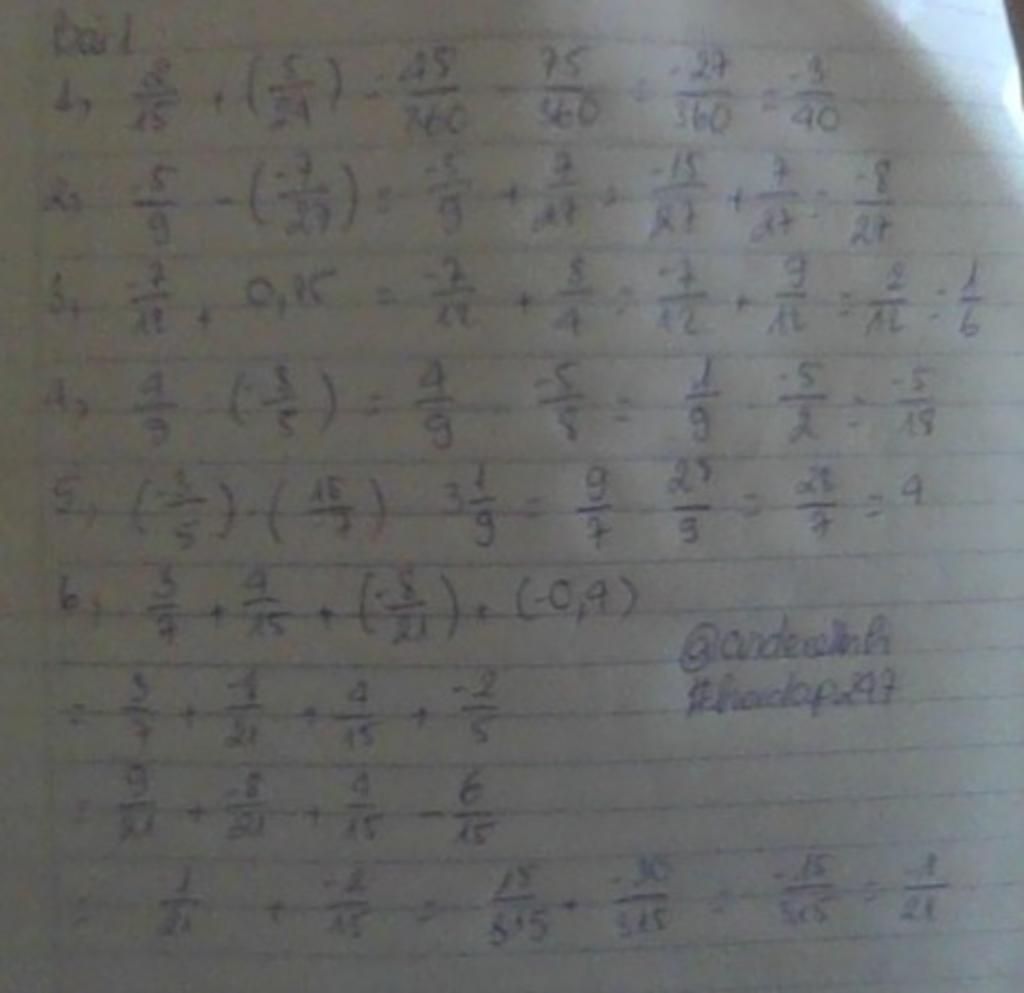 Bài 1
1, 2/15 + (5/24) = 45/360 - 75/360 = -27/360 = -3/40
2, -5/9 - (-7/27) = -5/9 + 7/27 = -15/27 + 7/27 = -8/27
3, -7/12 + 0,75 = -7/12 + 3/4 = -7/12 + 9/12 = 2/12 = 1/6
4, 4/9 = 4/9 . -5/8 = 1/9 . -5/2 = -5/18
5, (-3/5) . (15/7) 3 1/9 = 9/7 28/9 = 28/7 = 4
6, 3/7 + 4/15 + (-8/21) + (-0,4)
= 3/7 + -8/21 + 4/15 + -2/5
= 9/21 + -8/21 + 4/15 - 6/15
= 1/21 + -2/15 = 15/315 + -30/315 = -15/315 = -1/21